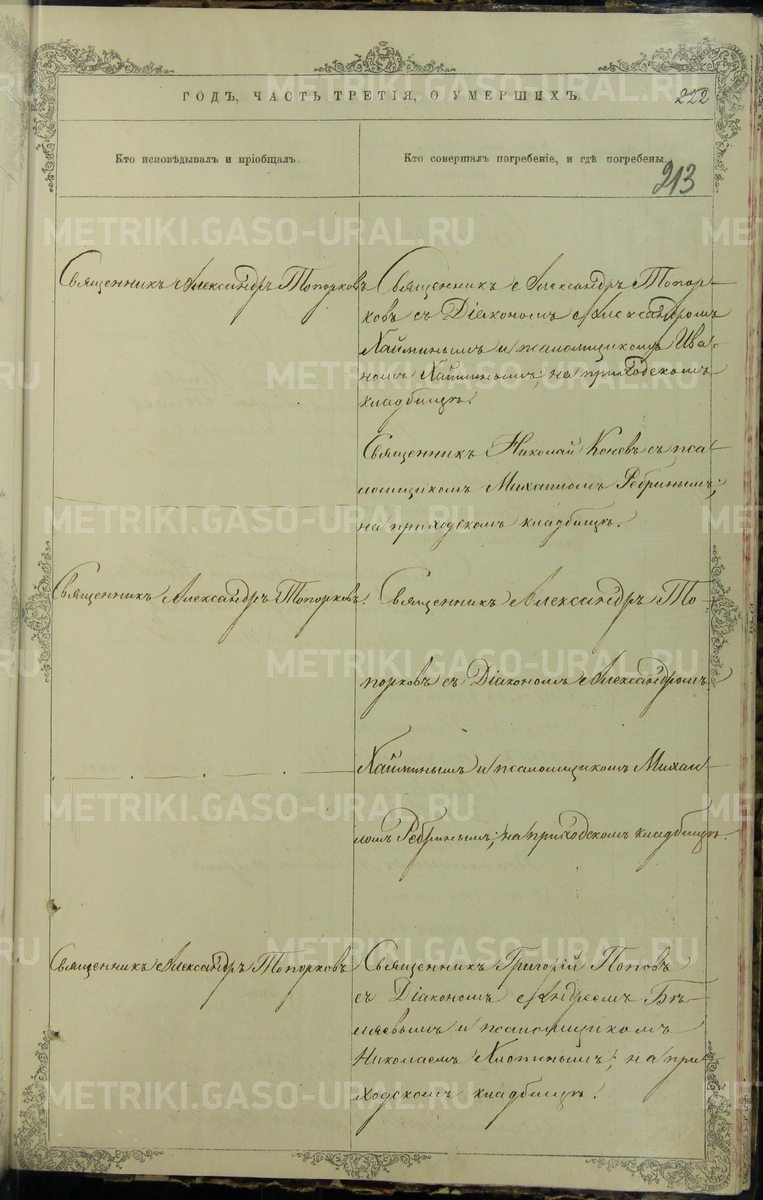 ГОДЪ, ЧАСТЬ ТРЕТІЯ, О УМЕРШИХЪ.
222
Кто исповѣдывалъ и пріобщалъ.
Кто совершалъ погребеніе, и гдѣ погребены.
213
METRIKI.GASO-URAL.RU
Священникъ Александръ Топорковъ
Священникъ Александръ Топор-
ковъ съ Діакономъ Александромъ
Хайминымъ и псаломщикомъ Ива-
номъ Хайминымъ; на приходскомъ
кладбищѣ.
Священникъ Николай Коневъ съ пса-
ломщикомъ Михаиломъ Ребринымъ;
на приходскомъ кладбищѣ.
Священникъ Александръ Топорковъ.
Священникъ Александръ То-
порковъ съ Діакономъ Александромъ
Хайминымъ и псаломщикомъ Михаи-
ломъ Ребринымъ; на приходскомъ кладбищѣ.
Священникъ Александръ Топорковъ
Священникъ Григорій Поповъ
съ Діакономъ Андреемъ Бѣ-
ляевымъ и псаломщикомъ
Николаемъ; на при-
ходскомъ кладбищѣ.